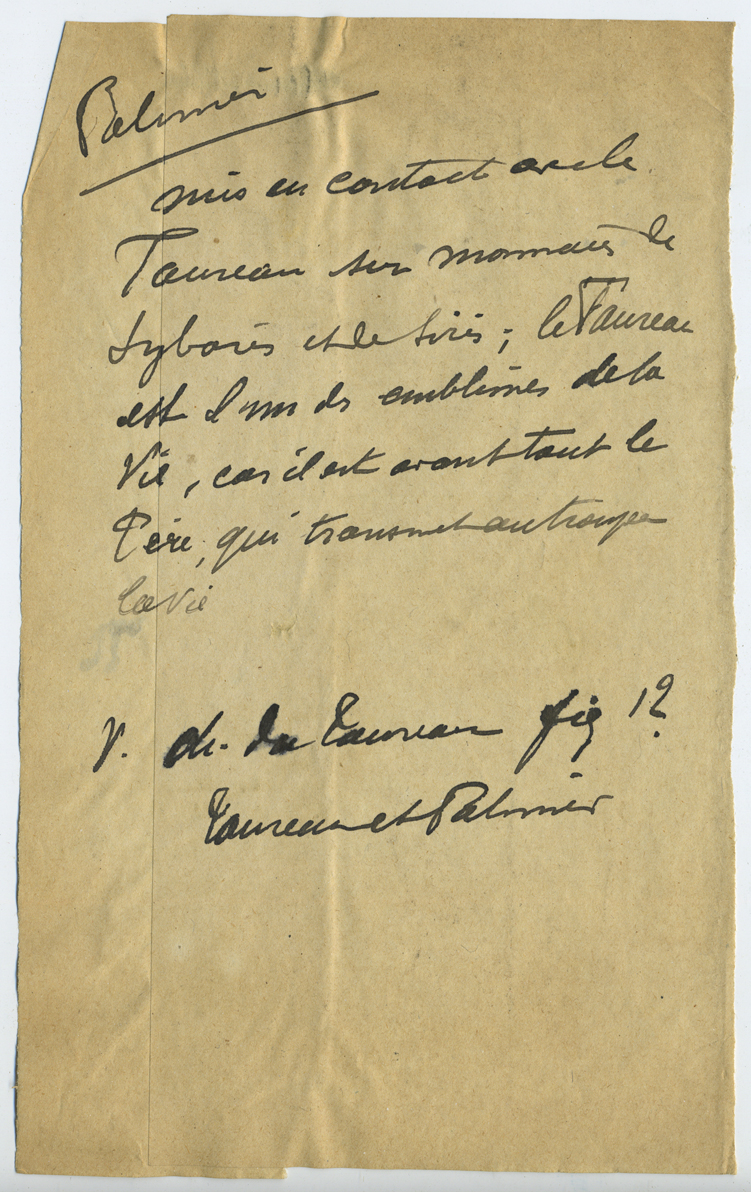 Palmier
mis en contact avec le
Taureau sur monnaies de
Sybaris et de Siris ; le Taureau
est l'un des emblèmes de la
Vie, car il est avant tout le
Père, qui transmet au troupeau
la vie
V. ch. du Taureau fig 1?
Taureau et Palmier